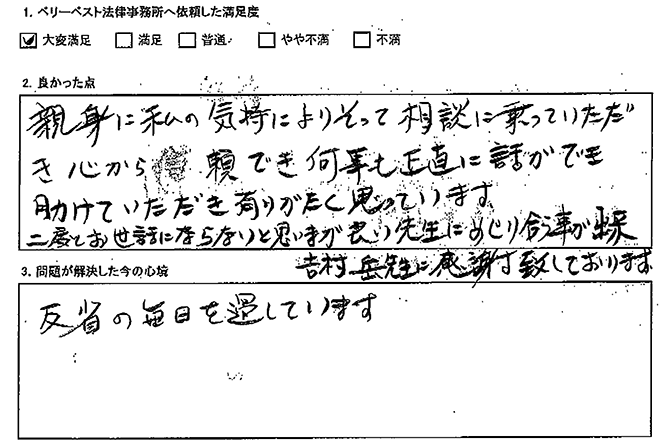 1. ベリーベスト法律事務所へ依頼した満足度
大変満足 満足 普通 やや不満 不満
2. 良かった点
親身に私の気持によりそって相談に乗っていただ
き心から信頼でき何事も正直に話ができ
助けていただき有りがたく思っています
二度とお世話にならないと思いますが良い先生にめぐり合う事が出来
吉村岳先生に感謝致しております
3. 問題が解決した今の心境
反省の毎日を過しています